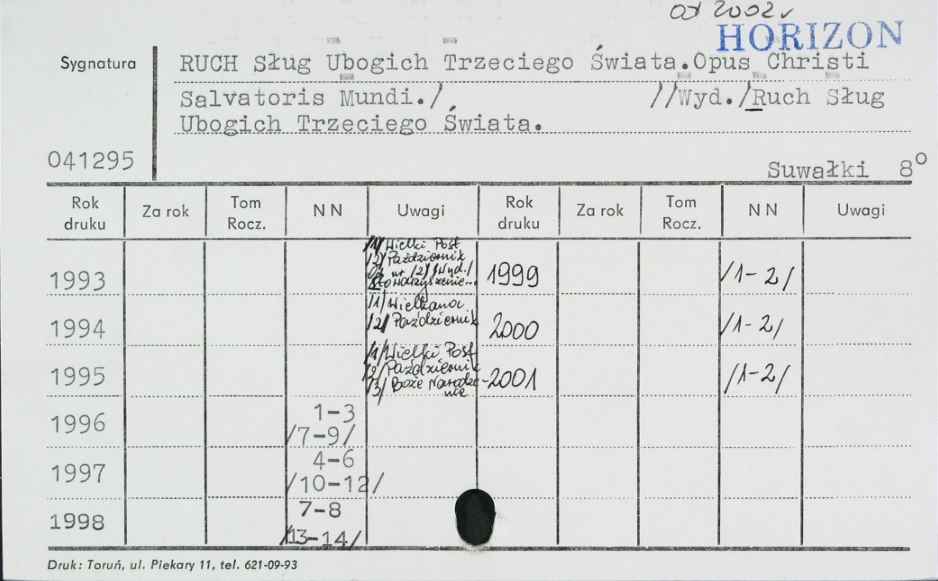 od 2002 r
HORIZON
Sygnatura
RUCH Sług Ubogich Trzeciego Świata.Opus Christi
Salvatoris Mundi./ //Wyd./Ruch Sług
Ubogich Trzeciego Świata.
041295
Suwałki 8°
Rok druku Za rok Tom Rocz. NN Uwagi Rok druku Za rok Tom Rocz. NN Uwagi
1993 /1/ Wielki Post
/2/ Październik
Od nr /2/ /Wyd./
Stowarzyszenie... 1999 /1-2/
1994 /1/ Wielkanoc
/2/ Październik 2000 /1-2/
1995 /1/ Wielki Post
/2/ Październik
/3/ Boże Narodze-
nie 2001 /1-2/
1996 1-3
/7-9/
1997 4-6
/10-12/
1998 7-8
/13-14/
Druk: Toruń, ul. Piekary 11, tel. 621-09-93